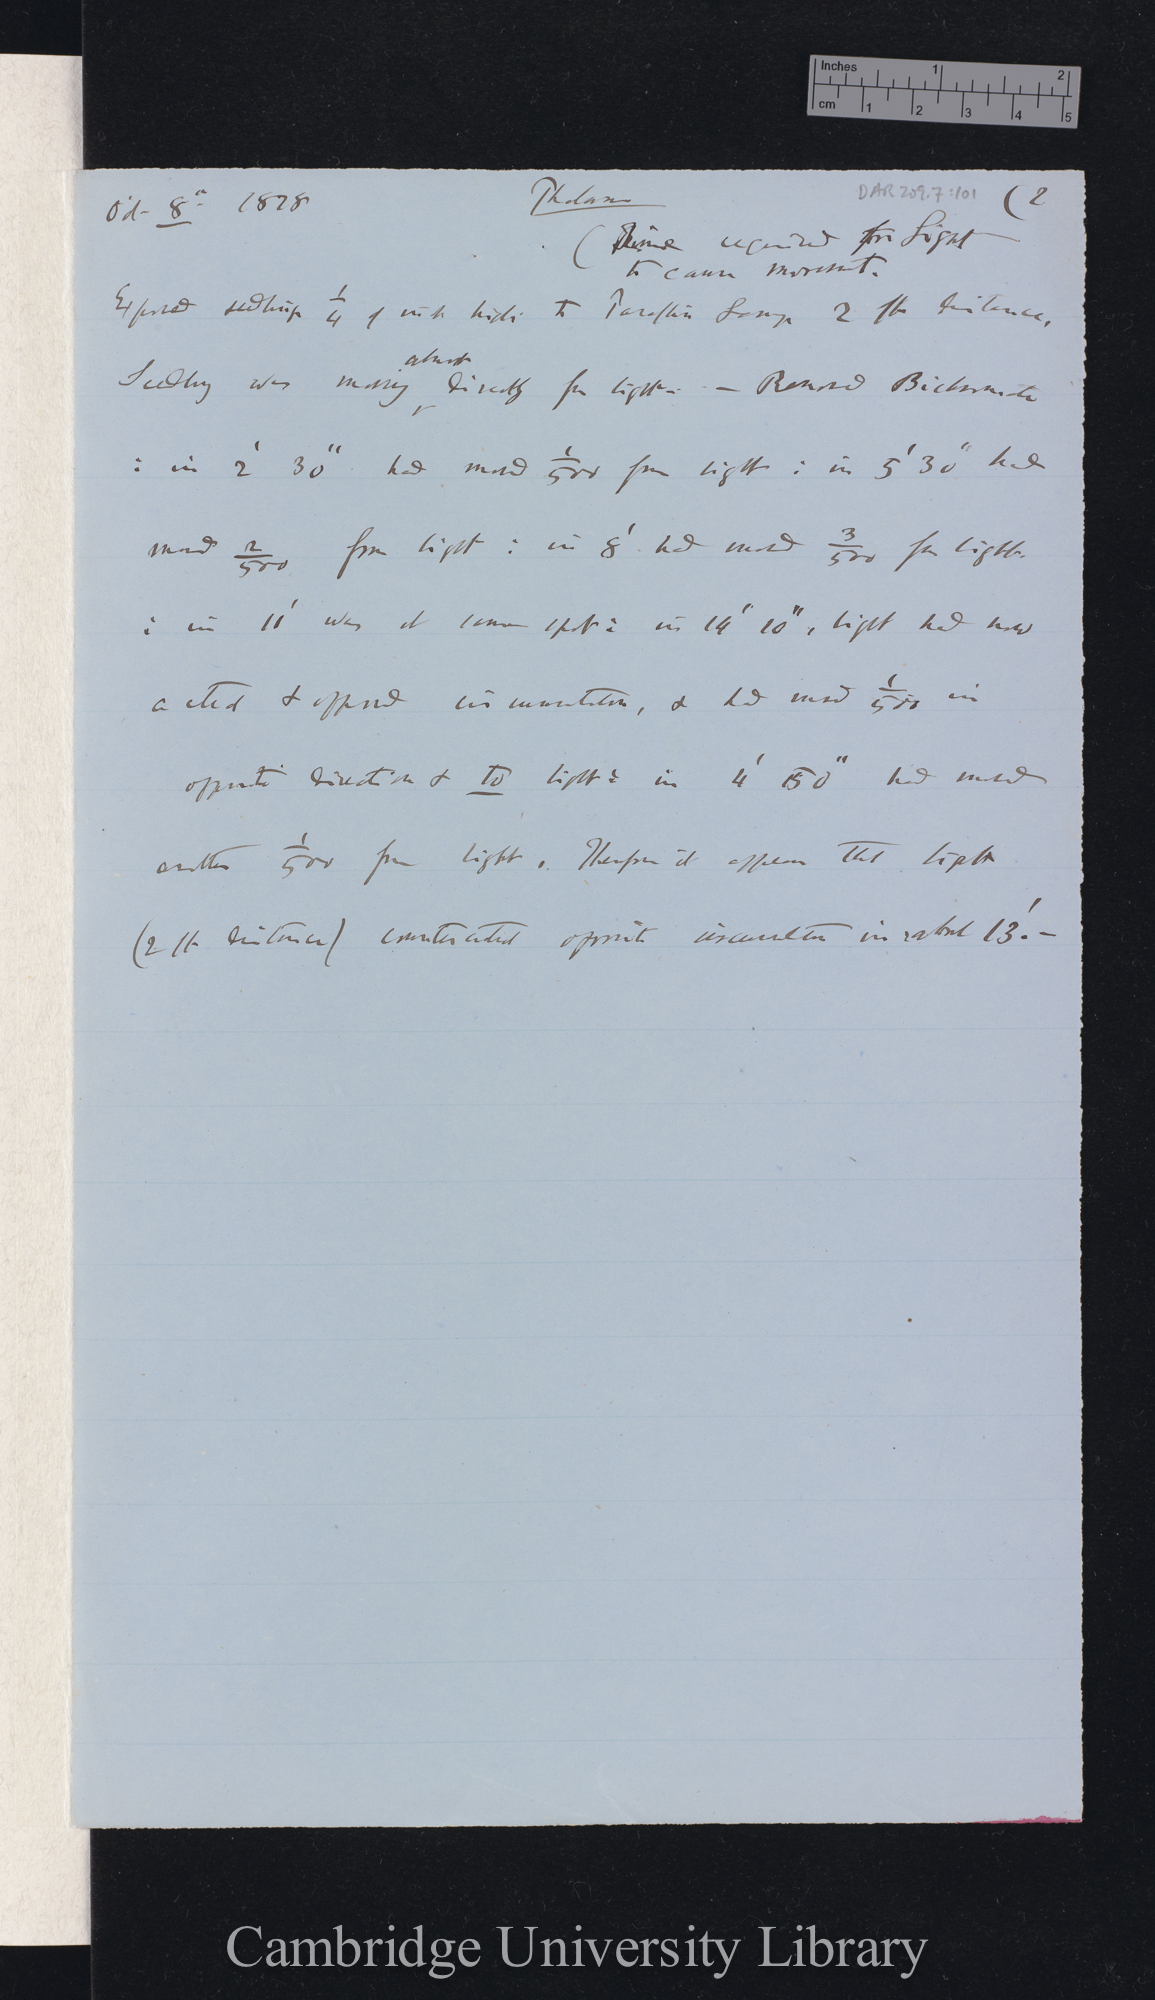 Inches 1 2
cm 1 2 3 4 5
DAR 209.7:101
Oct. 8th 1878 Phalaris (2
(Time required for Light
to cause movement.
Exposed seedling 1/4 of inch high to Paraffin Lamp 2 ft distance.
almost
Seedling was moving directly from light. — Removed Bichromate
: in 2' 30" had moved 1/500 from light : in 5' 30" had
moved 2/500 from light : in 8' had moved 3/500 from light
: in 11' was at same spot : in 14' 10", light had now
acted & opposed circumnutation, & had moved 1/500 in
opposite direction & to light : in 4' 50" had moved
another 1/500 from light. Therefore it appears that light
(2 ft distance) counteracted opposite circumnutation in about 13'. —
Cambridge University Library